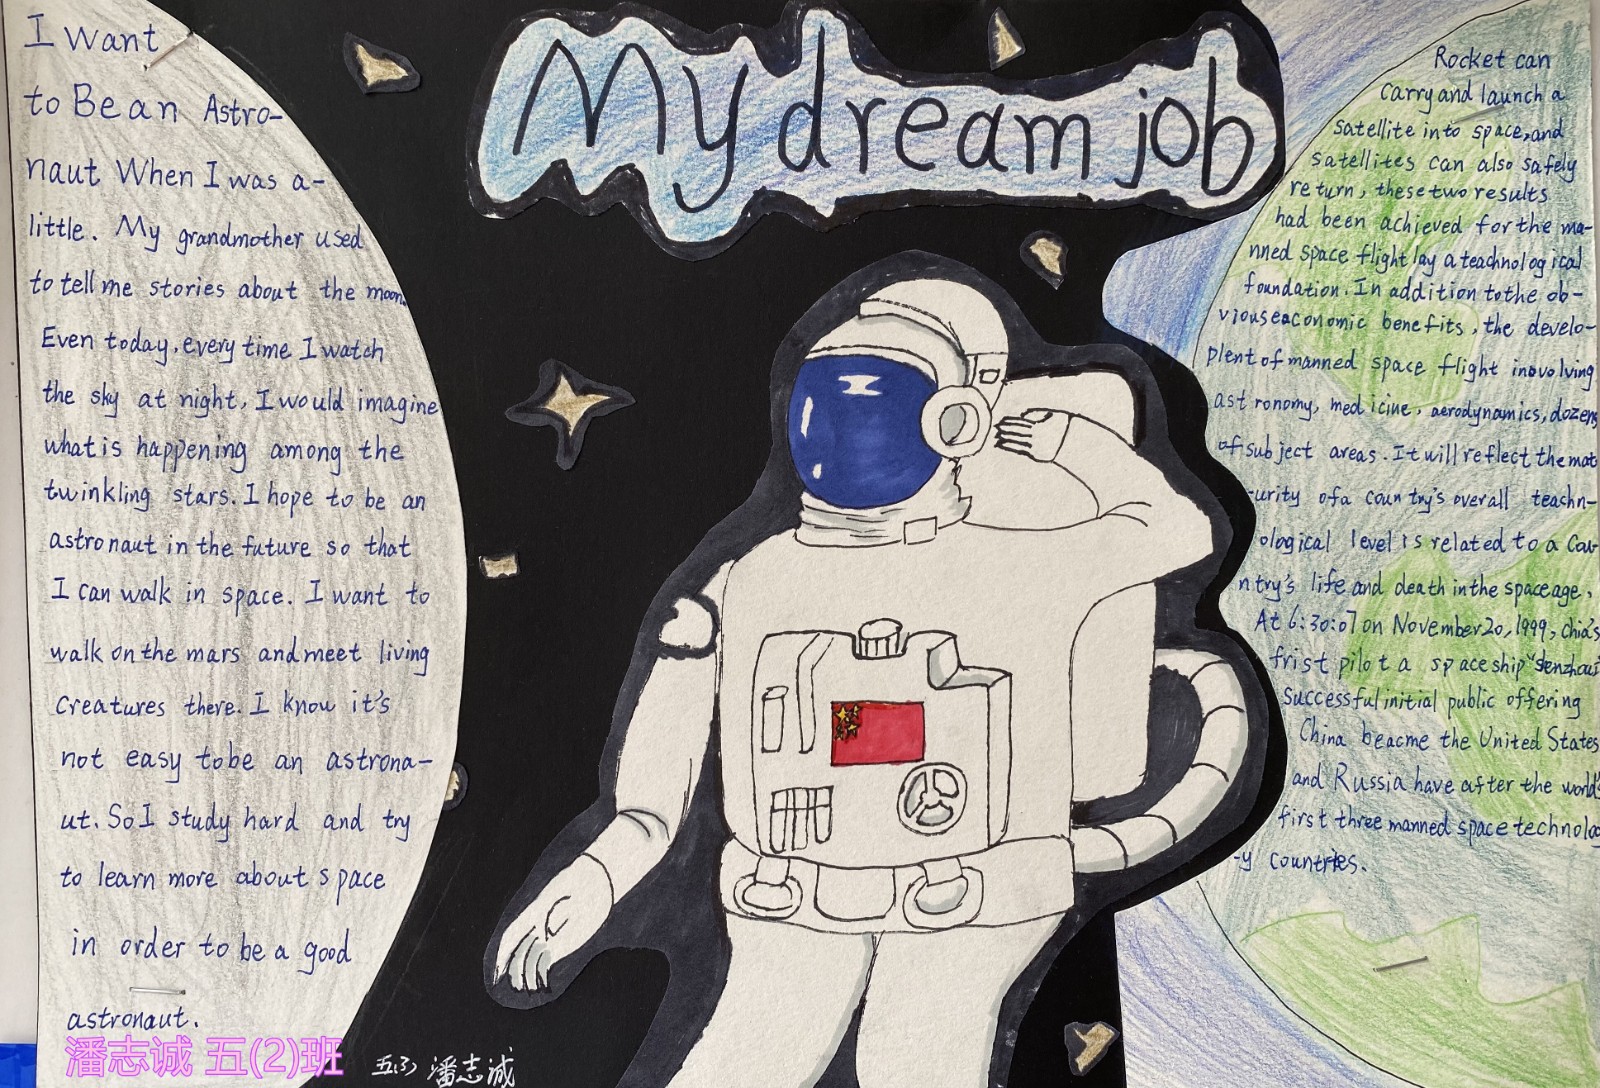 My dream job
I Want
to Be an Astro-
naut When I was a-
little. My grandmother used
to tell me stories about the moon.
Even today, every time I watch
the sky at night, I would imagine
what is happening among the
twinkling stars. I hope to be an
astronaut in the future so that
I can walk in space. I want to
walk on the mars and meet living
creatures there. I know it's
not easy to be an astrona-
ut. So I study hard and try
to learn more about space
in order to be a good
astronaut.
Rocket can
carry and launch a
satellite into space, and
satellites can also safely
return, these two results
had been achieved for the ma-
nned space flight lay a teachnological
foundation. In addition to the ob-
vious eaconomic benefits, the develo-
plent of manned space flight inovolving
astronomy, medicine, aerodynamics, dozens
of subject areas. It will reflect the mat
-urity of a country's overall teachn-
ological level is related to a cou-
ntry's life and death in the space age.
At 6:30:07 on November 20, 1999, Chia's
frist pilot a spaceship "Senzhou"
successful initial public offering
China beacme the United States
and Russia have after the world's
first three manned space technolog
-y countries.
潘志诚 五(2)班
五(2) 潘志诚